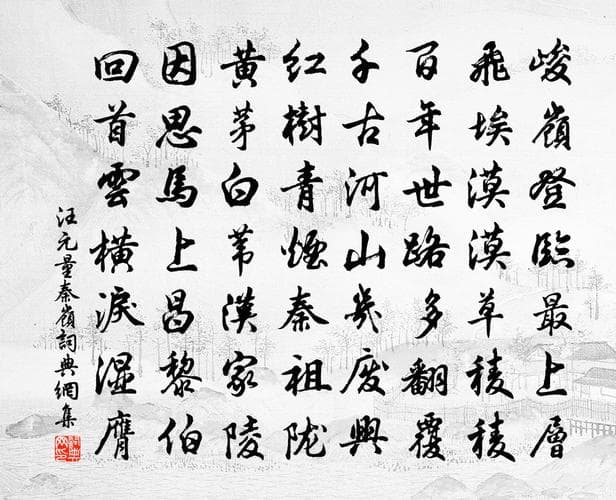 峻嶺登臨最上層
飛埃漠漠草稜稜
百年世路多翻覆
千古河山幾廢興
紅樹青煙秦祖陇
黃茅白葦漢家陵
因思馬上昌黎伯
回首雲橫淚湿膺
汪元量秦嶺詞典網集